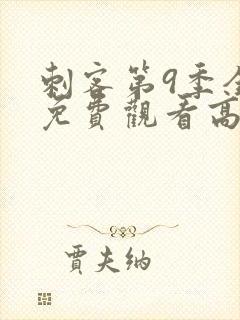 刺客第9季全
免費觀看高
賈夫納